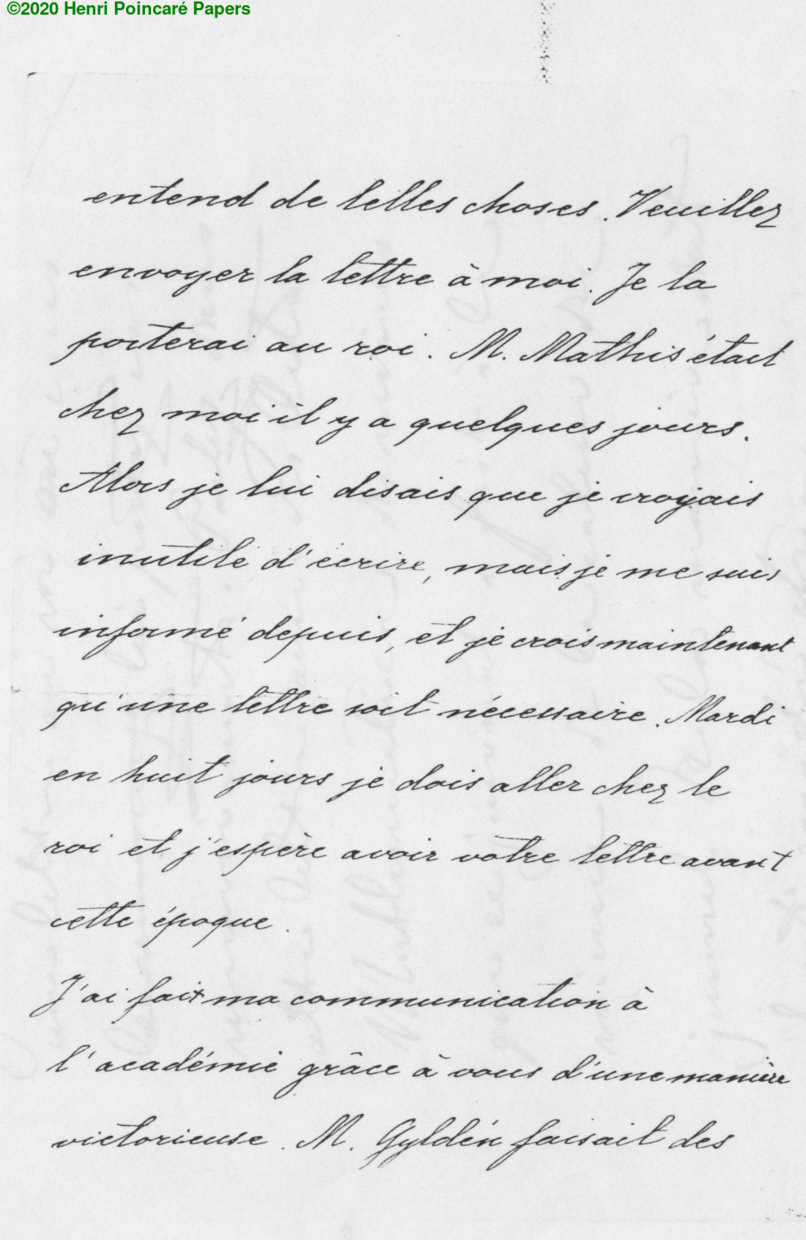 ©2020 Henri Poincaré Papers
entend de telles choses. Veuillez
envoyer la lettre à moi. Je la
porterai au roi. M. Mathis était
chez moi il y a quelques jours.
Alors je lui disais que je croyais
inutile d'écrire, mais je me suis
informé depuis, et je crois maintenant
qu'une lettre soit nécessaire. Mardi
en huit jours je dois aller chez le
roi et j'espère avoir votre lettre avant
cette époque.
J'ai fait ma communication à
l'académie grâce à vous d'une manière
victorieuse. M. Gyldén faisait des